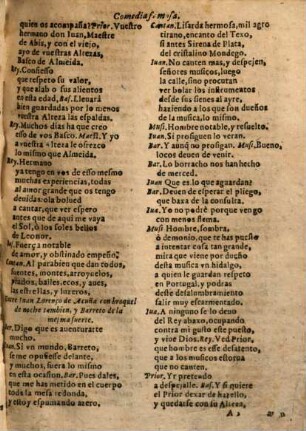 Comedia famosa.
quien os acompaña? Prior. Vuestro
hermano don Iuan, Maestre
de Abis, y con el viejo,
ayo de vuestras Altezas,
Basco de Almeida.
Rey. Confiesso
que respeto su valor,
y que alabo sus alientos
en esta edad, Bas. Lleuarà
bien guardadas por lo menos
vuestra Alteza las espaldas.
Rey. Muchos dias ha que creo
esso de vos Basco. Maest. Y yo
a vuestra Alteza le ofrezco
lo mismo que Almeida.
Rey. Hermano
ya tengo en vos de esso mesmo
muchas experiencias, todas
al amor grande que os tengo
deuidas: olabolued
a cantar, que ver espero
antes que de aqui me vaya
el Sol, ò los soles bellos
de Leonor.
Inf. Fuerça notable
de amor, y obstinado empeño.
Cantan. Al parabien que dan todos,
fuentes, montes, arroyuelos,
riscos, balles, ecos, y aues,
las estrellas, y luzeros.
Entre Iuan Lorenço de Acuña con broquel
de noche tambien, y Barreto de la
misma suerte.
Bar. Digo que es auenturarte
mucho.
Iuan. Si vn mundo, Barreto,
se me opusiesse delante,
y muchos, fuera lo mismo
en esta ocasion. Bar. Pues dales,
que me has metido en el cuerpo
toda la mesa redonda,
y estoy espumando azero.
Cantan. Lisarda hermosa, mil agro
tirano, encanto del Texo,
si antes Sirena de Plata,
del cristalino Mondego.
Iuan. No canten mas, y despejen,
señores musicos, luego
la calle, sino procuran
ver borlado los instrumentos
desde sus sienes al ayre,
haziendo a los que son dueños
de la musica, lo mismo.
Musi. Hombre notable, y resuelto.
Iuan. Si prosiguen lo veran.
Bar. Y aunq no prosigan. Mus. Bueno,
locos deuen de venir.
Bar. Lo borracho nos han hecho
de merced.
Iuan. Que es lo que aguardan?
Bar. Deuen de esperar el pliego,
que baxa de la consulta.
Iua. Yo no podrè porque vengo
con menos flema.
Musi. Hombre, sombra,
ò demonio, que te has puesto
a intentar cosa tan grande,
mira que viene por dueño
desta musica vn hidalgo,
a quien le guardan respeto
en Portugal, y podras
deste deslumbramiento
salir muy escarmentado.
Iua. A ninguno se lo deuo
del Rey abaxo, ocupando
contra mi gusto este puesto,
y viue Dios. Rey. Ved Prior,
que hombre es esse desatento,
que a los musicos estorua
que no canten.
Prior. Yr pretendo
a despejalle. Bas. Y si quiere
el Prior dexar de hazello,
y quedarse con su Alteza,
A 2